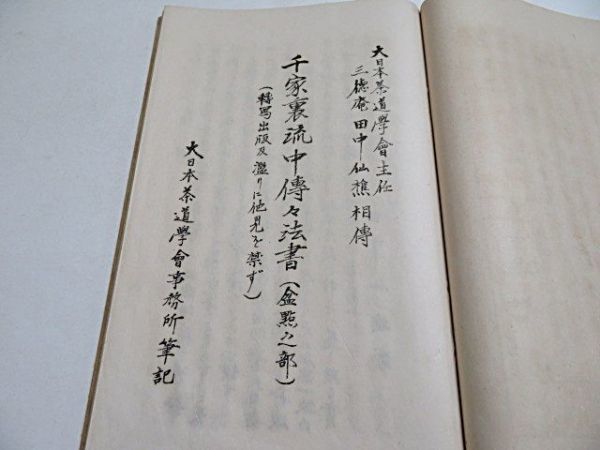 大日本茶道學會主任
三徳庵田中仙樵相傳
千家裏流中傳々法書(盆點之部)
(轉写出版及濫りに他見を禁ず)
大日本茶道學會事務所筆記